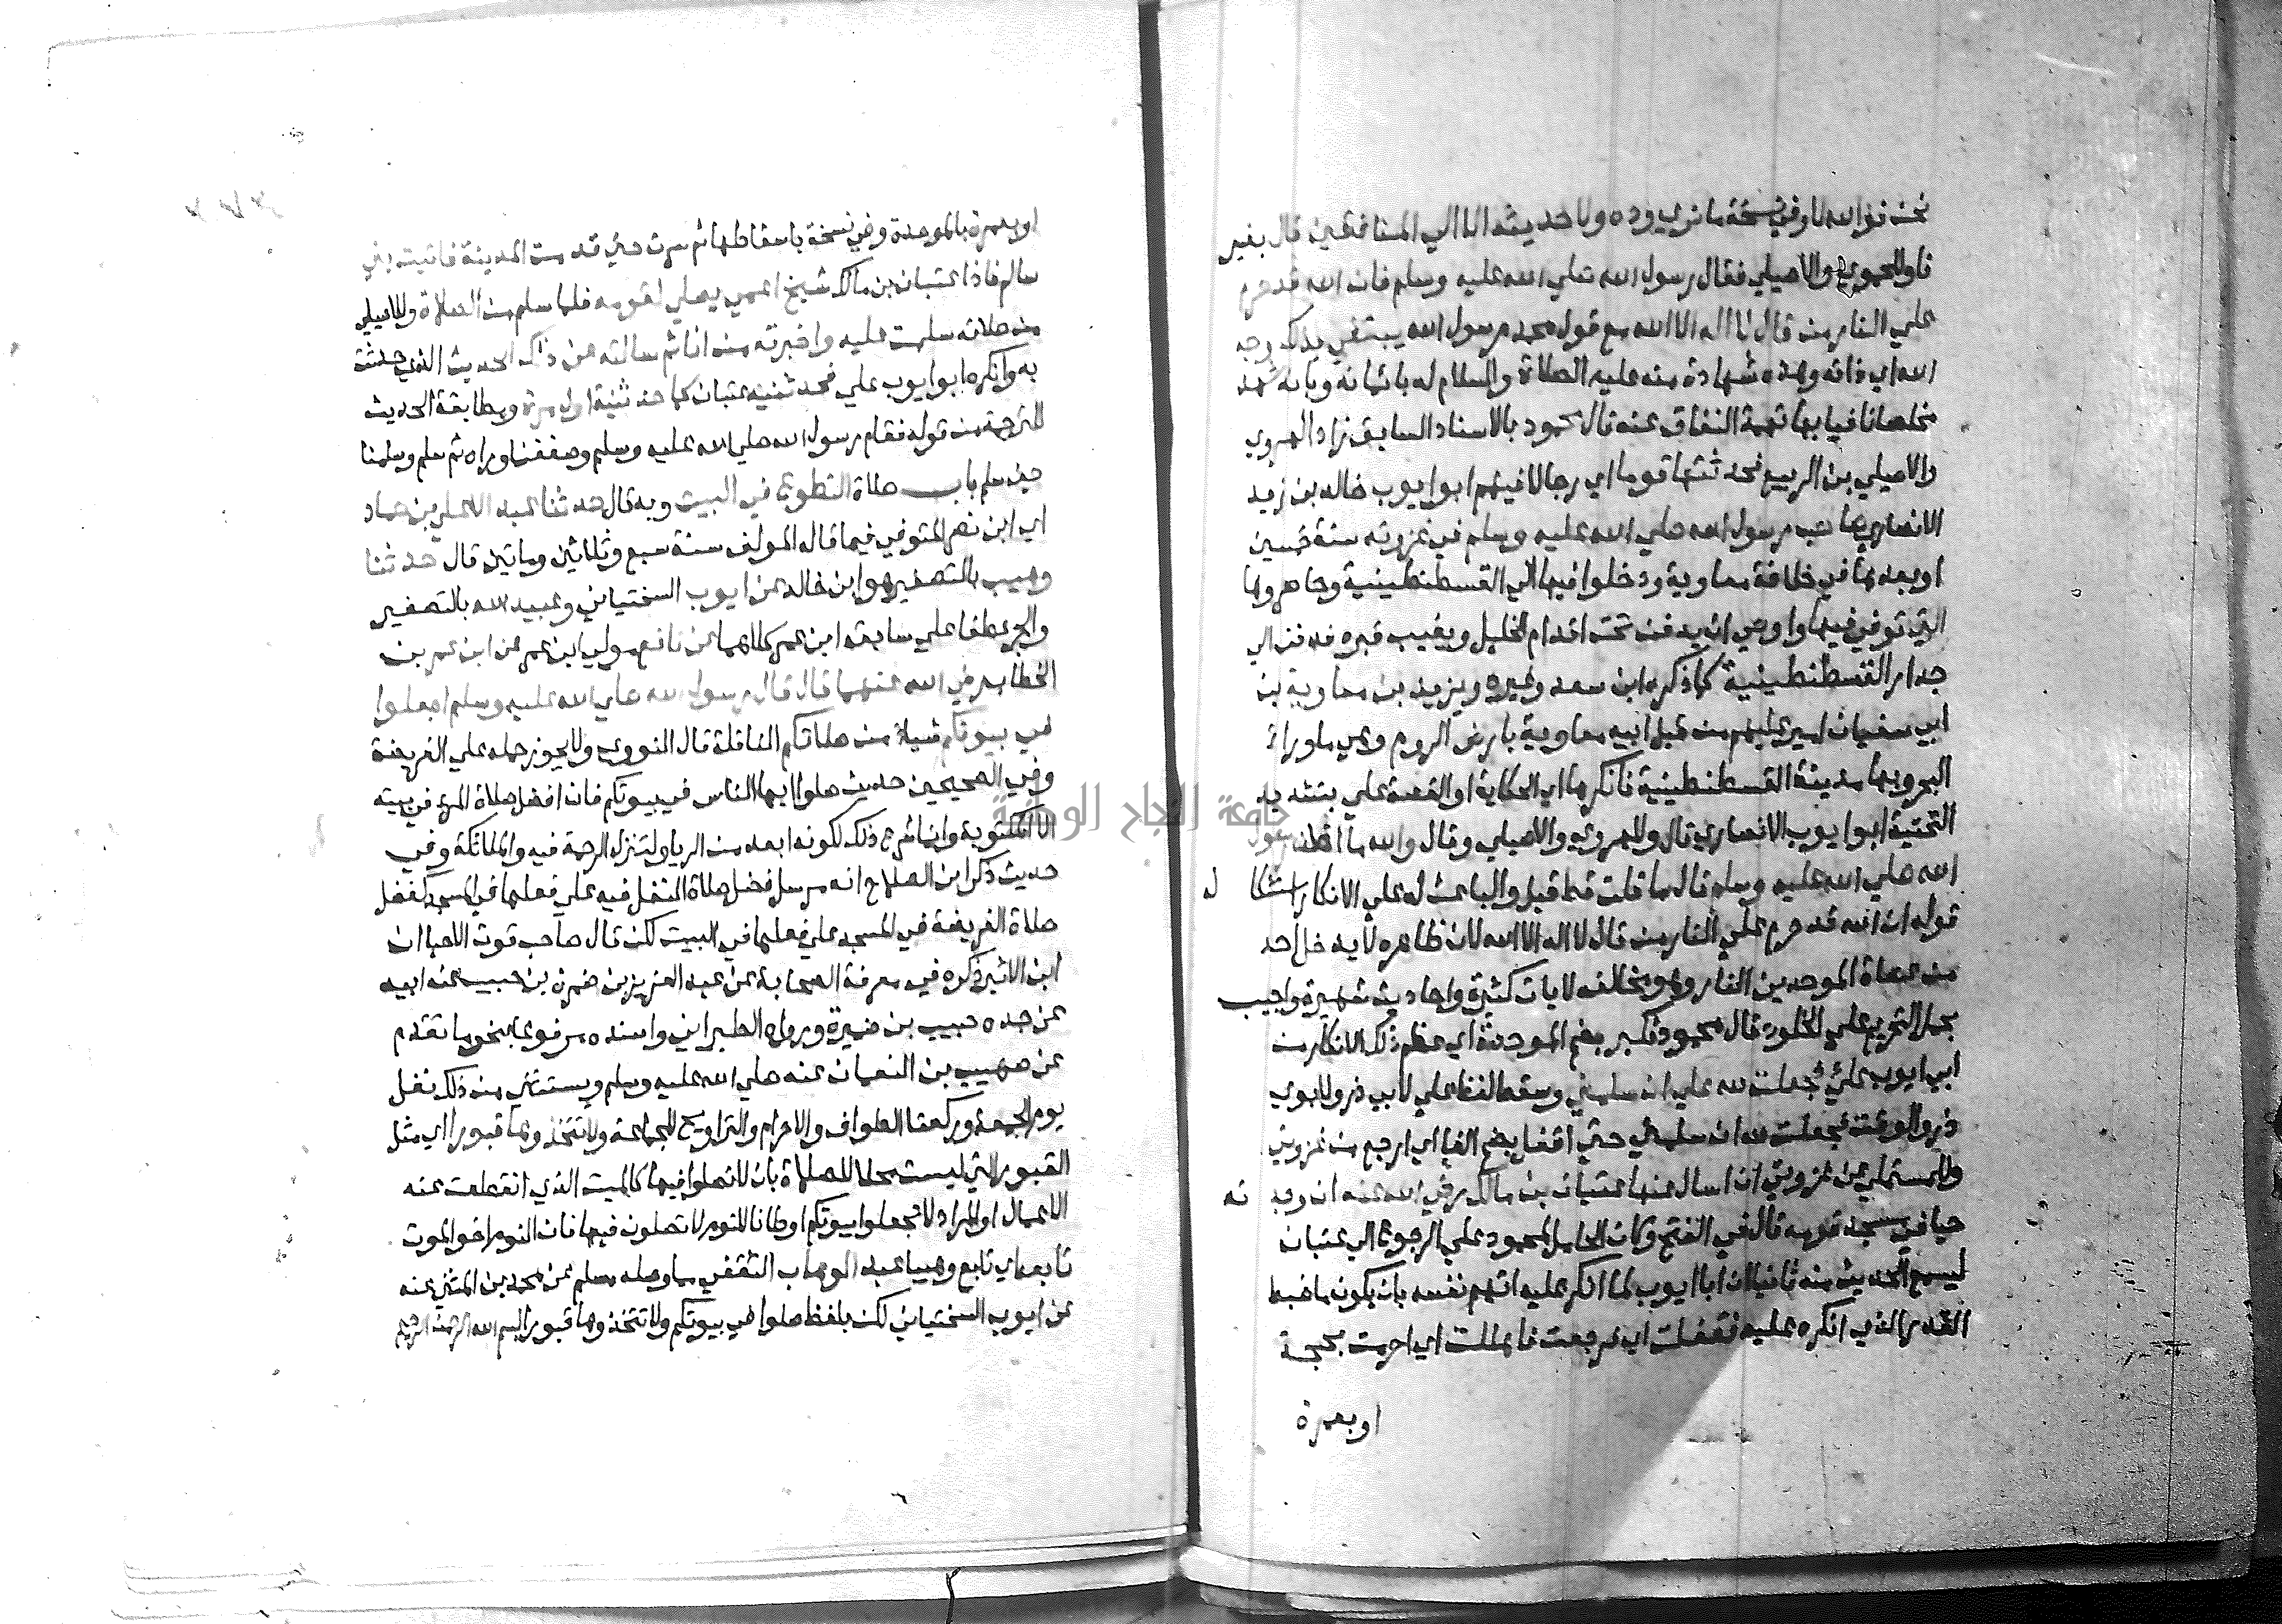 نحن فوالله لا وفي نسخة ما نري وده ولا حديثه الا الي المنافقين قال بغير
فا وللحموي والاصيلي فقال رسول الله صلي الله عليه وسلم فان الله قد حرم
علي النار من قال لا اله الا الله مع قول محمد رسول الله يبتغي بذلك وجه
الله اي ذاته وهذه شهادة منه عليه الصلاة والسلام له بايمانه وبانه شهد
مخلصا نافيا بها تهمة النفاق عنه قال محمود بالاسناد السابق زاد الهروي
والاصيلي بن الربيع فحدثتها قوما اي رجالا فيهم ابو ايوب خالد بن زيد
الانصاري صاحب رسول الله صلي الله عليه وسلم في غزوته سنة خمسين
او بعدها في خلافة معاوية ودخلوا فيها الي القسطنطينية وحاصروها
التي توفي فيها واوصي ان يدفن تحت اقدام الخليل ويغيب قبره فدفن الي
جدار القسطنطينية كما ذكره ابن سعد وغيره ويزيد بن معاوية بن
ابي سفيان امير عليهم من قبل ابيه معاوية بارض الروم وهي ما وراء
البحر وبها مدينة القسطنطينية فانكرها اي الحكاية او القصة علي بتشديد
التحتية ابو ايوب الانصاري قال وللهروي والاصيلي وقال والله ما اظن رسول
الله صلي الله عليه وسلم قال ما قلت قط قيل والباعث له علي الانكار استشكاله
قوله ان الله قد حرم علي النار من قال لا اله الا الله لان ظاهره لا يدخل احد
من عصاة الموحدين النار وهو مخالف لايات كثيرة واحاديث شهيرة واجيب
بحمل التحريم علي الخلود قال محمود فكبر بضم الموحدة اي عظم ذلك الانكار من
ابي ايوب علي فجعلت لله علي ان سلمني وسقط لفظ علي لابي ذر ولابوي
ذر والوقت فجعلت لله ان سلمني حتي اقفل بضم الفا اي ارجع من غزوتي
وللمستملي عن غزوتي ان اسال عنها عتبان بن مالك رضي الله عنه ان وجدته
حيا في مسجد قومه قال في الفتح وكان الحامل لمحمود علي الرجوع الي عتبان
ليسمع الحديث منه ثانيا ان ابا ايوب لما انكر عليه اتهم نفسه بان يكون ما ضبط
القدر الذي انكره عليه فقفلت اي فرجعت فاهللت اي احرمت بحجة
او بعمرة
او بعمرة بالموحدة وفي نسخة باسقاطها ثم سرت حتي قدمت المدينة فاتيت بني
سالم فاذا عتبان بن مالك شيخ اعمي يصلي لقومه فلما سلم من الصلاة وللاصيلي
من صلاته سلمت عليه واخبرته من انا ثم سالته عن ذاك الحديث الذي حدثت
به وانكره ابو ايوب علي فحدثنيه عتبان كما حدثنيه اول مرة ومطابقة الحديث
للترجمة من قوله فقام رسول الله صلي الله عليه وسلم وصففنا وراه ثم سلم وسلمنا
حين سلم باب صلاة التطوع في البيت وبه قال حدثنا عبد الاعلي بن حماد
اي ابن نصر المتوفي فيما قاله المولف سنة سبع وثلاثين وماتين قال حدثنا
وهيب بالتصغير هو ابن خالد عن ايوب السختياني وعبيد الله بالتصغير
والجر عطفا علي سابقه ابن عمر كلاهما عن نافع مولي ابن عمر عن ابن عمر بن
الخطاب رضي الله عنهما قال قال رسول الله صلي الله عليه وسلم اجعلوا
في بيوتكم شيا من صلاتكم النافلة قال النووي ولا يجوز حمله علي الفريضة
وفي الصحيحين حديث صلوا ايها الناس في بيوتكم فان افضل صلاة المرء في بيته
الا المكتوبة وانما شرع ذلك لكونه ابعد من الريا ولتنزل الرحمة فيه والملائكة وفي
حديث ذكر ابن الصلاح انه مرسل فضل صلاة النفل فيه علي فعلها في المسجد كفضل
صلاة الفريضة في المسجد علي فعلها في البيت لكن قال صاحب قوت الاحيا ان
ابن الاثير ذكره في معرفة الصحابة عن عبد العزيز بن ضمرة بن حبيب عنه ابيه
عن جده حبيب بن ضميرة ورواه الطبراني واسنده مرفوعا بنحو ما تقدم
عن صهيب بن النعمان عنه صلي الله عليه وسلم ويستثني من ذلك نفل
يوم الجمعة وركعتا الطواف والاحرام والتراويح للجماعة ولا تتخذوها قبورا اي مثل
القبور التي ليست محلا للصلاة بان لا تصلوا فيها كالميت الذي انقطعت عنه
الاعمال او المراد لا تجعلوا بيوتكم اوطانا للنوم لا تصلون فيها فان النوم اخو الموت
تابعه اي تابع وهيبا عبد الوهاب الثقفي مما وصله مسلم عن محمد بن المثني عنه
عن ايوب السختياني لكن بلفظ صلوا في بيوتكم ولا تتخذوها قبورا بسم الله الرحمن الرحيم
جامعة النجاح الوطنية